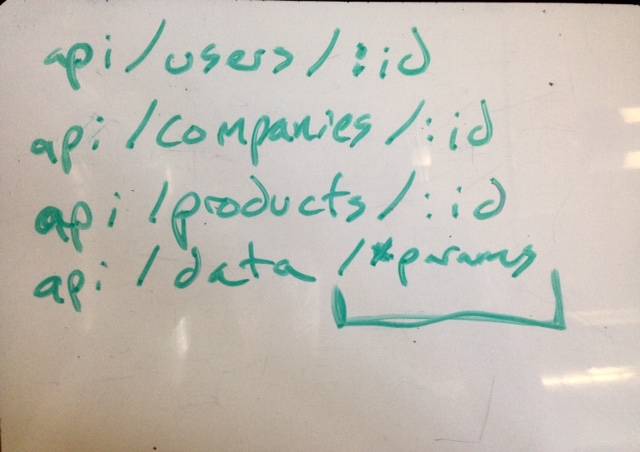 api/users/:id
api/companies/:id
api/products/:id
api/data/*params